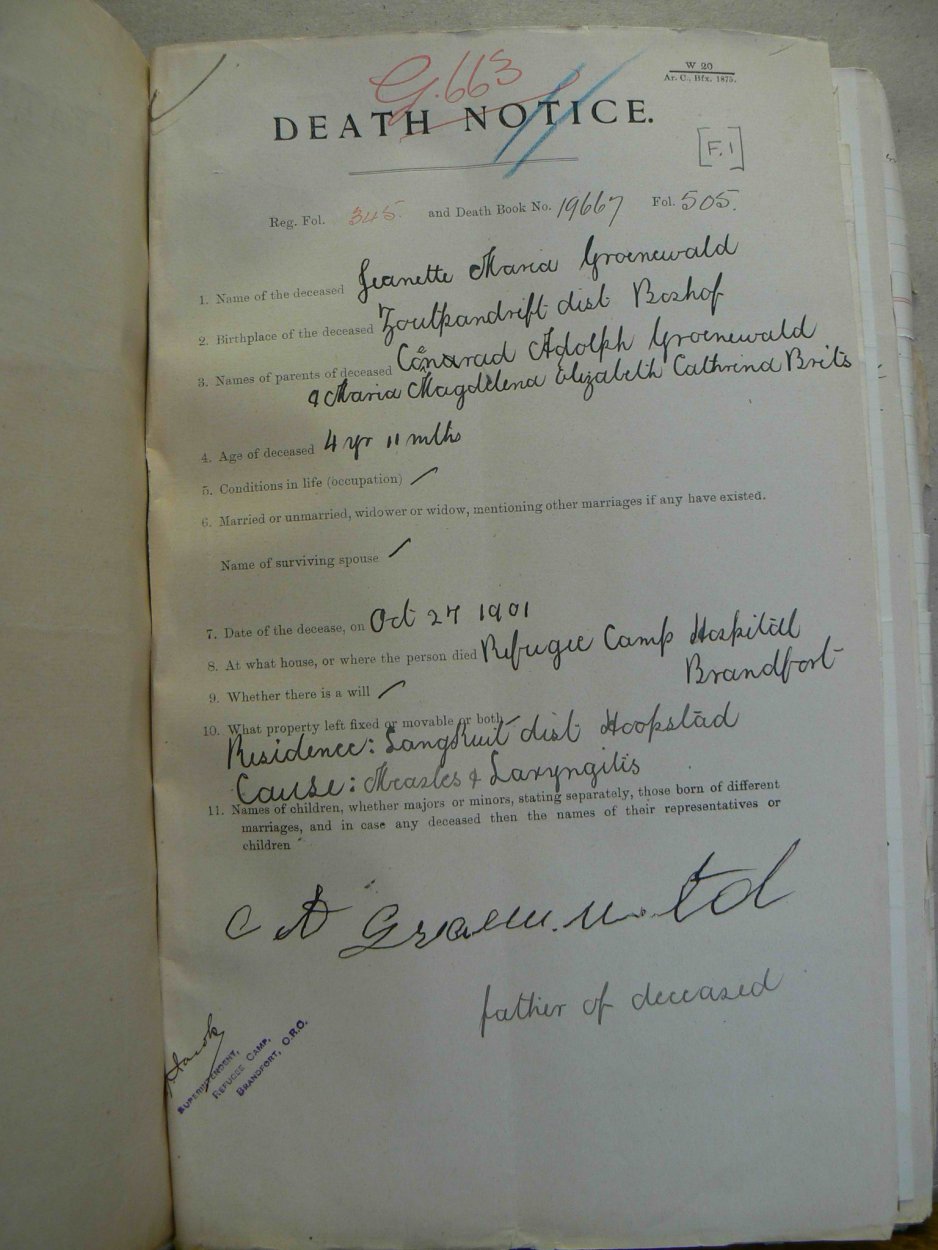 G.663
W 20
Ar. C., Bfx. 1875.
DEATH NOTICE.
[F.1]
Reg. Fol. 345. and Death Book No. 19667 Fol. 505.
1. Name of the deceased Jeanette Maria Groenewald
2. Birthplace of the deceased Zoutpandrift dist Boshof
3. Names of parents of deceased Conarad Adolph Groenewald
& Maria Magdelena Elizabeth Cathrina Brits
4. Age of deceased 4 yr 11 mths
5. Conditions in life (occupation)
6. Married or unmarried, widower or widow, mentioning other marriages if any have existed.
Name of surviving spouse
7. Date of the decease, on Oct 27 1901
8. At what house, or where the person died Refugee Camp Hospitall
Brandfort
9. Whether there is a will
10. What property left fixed or movable or both
Residence: Langkuil dist Hoopstad
Cause: Measles & Laryngitis
11. Names of children, whether majors or minors, stating separately, those born of different
marriages, and in case any deceased then the names of their representatives or
children
C A
father of deceased
SUPERINTENDENT,
REFUGEE CAMP,
BRANDFORT, O.R.O.